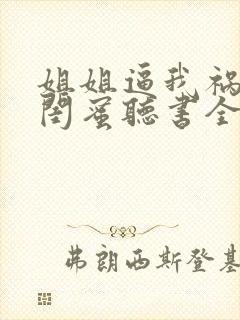 姐姐逼我祸
闺蜜听书全
弗朗西斯登基